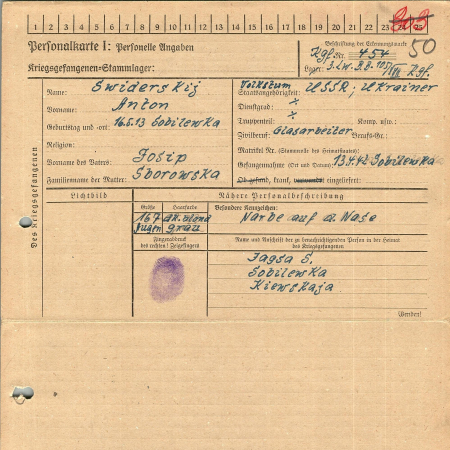 1 2 3 4 5 6 7 8 9 10 11 12 13 14 15 16 17 18 19 20 21 22 23 24 25
Personalkarte I: Personelle Angaben
Beschriftung der Erkennungsmarke
50
Kgf. Nr. 454
Kriegsgefangenen-Stammlager:
Lager:
Des Kriegsgefangenen
Name: Swiderskij
Vorname: Anton
Geburtstag und -ort: 16.5.13 Sobilewka
Religion:
Vorname des Vaters: Josip
Familienname der Mutter: Sborowska
Volkstum
Staatsangehörigkeit: USSR; Ukrainer
Dienstgrad: x
Truppenteil: x Komp. usw.:
Zivilberuf: Glasarbeiter Berufs-Gr.:
Matrikel Nr. (Stammrolle des Heimatstaates):
Gefangennahme (Ort und Datum): 13.4.42 Sobilewka
Ob gesund, krank, verwundet eingeliefert:
Lichtbild
Nähere Personalbeschreibung
Größe Haarfarbe
167 dk. blond
Augen grau
Besondere Kennzeichen:
Narbe auf d. Nase
Fingerabdruck
des rechten! Zeigefingers
Name und Anschrift der zu benachrichtigenden Person in der Heimat
des Kriegsgefangenen
Jagsa S.
Sobilewka
Kiewskaja
Wenden!